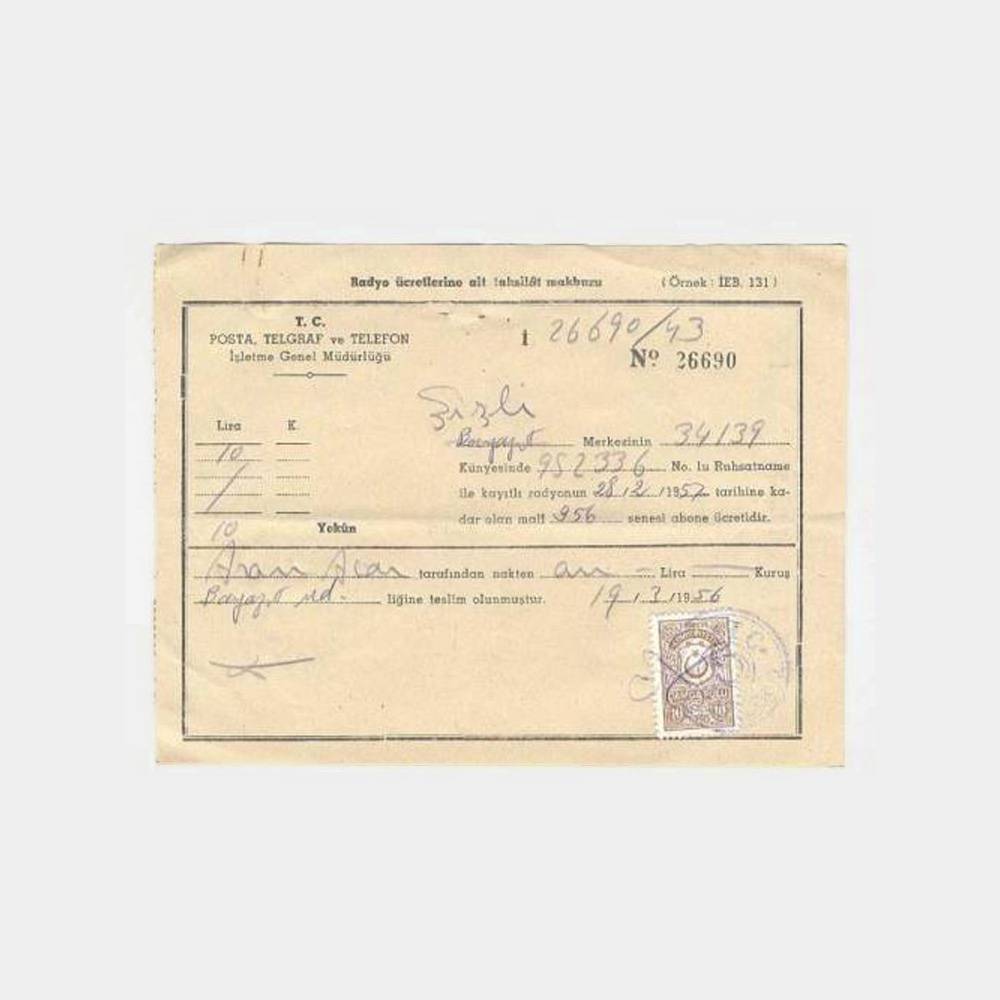 Radyo ücretlerine ait tahsilât makbuzu (Örnek : İEB. 131)
T. C.
POSTA, TELGRAF ve TELEFON
İşletme Genel Müdürlüğü
İ 26690/43
Nº 26690
Şişli
Lira K.
Bayazıt Merkezinin 34139
10
Künyesinde 952336 No. lu Ruhsatname
ile kayıtlı radyonun 28/2/1957 tarihine ka-
dar olan malî 956 senesi abone ücretidir.
10 Yekûn
tarafından nakten on Lira Kuruş
Bayazıt liğine teslim olunmuştur. 19/3/1956
DAMGA PULU
10 10